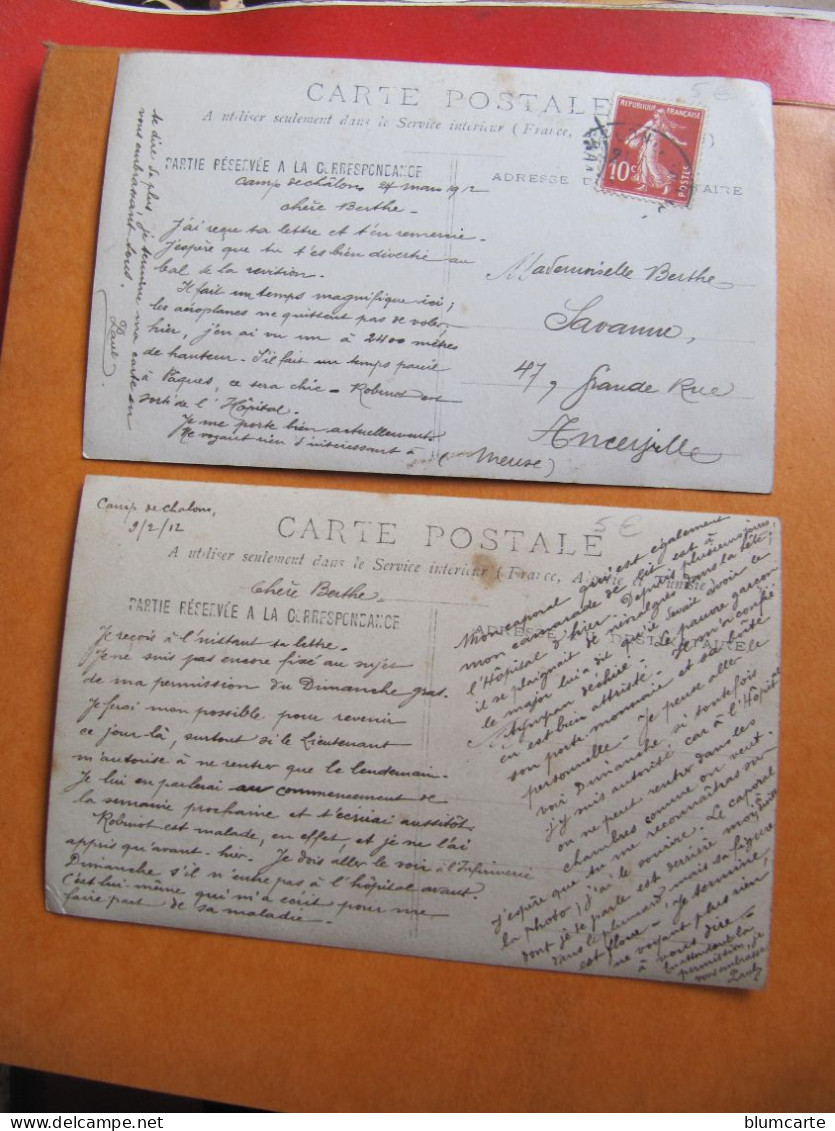 5 €
CARTE POSTALE
A utiliser seulement dans le Service intérieur (France,
REPUBLIQUE FRANÇAISE
10c
POSTES
PARTIE RÉSERVÉE A LA CORRESPONDANCE
ADRESSE D
AIRE
Camp de Châlons 24 mars 1912
Chère Berthe -
J'ai reçu ta lettre et t'en remercie.
J'espère que tu t'es bien divertie au
bal de la
Il fait un temps magnifique ici;
les aéroplanes ne quittent pas de voler,
hier, j'en ai vu un à 2400 mètres
de hauteur. S'il fait un temps pareil
à Pâques, ce sera chic - Robinot est
sorti de l'Hôpital.
Je me porte bien actuellement.
Ne voyant rien d'intéressant à
te dire de plus, je termine ma carte en
vous embrassant tous.
Paul
Mademoiselle Berthe
Savanne,
47, Grande Rue
Ancerville
(Meuse)
Camp de Chalons,
9/2/12
5 €
CARTE POSTALE
A utiliser seulement dans le Service intérieur (France, Algérie et Tunisie)
Chère Berthe
PARTIE RÉSERVÉE A LA CORRESPONDANCE
ADRESSE DU DESTINATAIRE
Je reçois à l'instant ta lettre.
Je ne suis pas encore fixé au sujet
de ma permission du Dimanche gras.
Je ferai mon possible pour revenir
ce jour là, surtout si le Lieutenant
m'autorise à ne rentrer que le lendemain.
Je lui en parlerai au commencement de
la semaine prochaine et t'écrirai aussitôt.
Robinot est malade, en effet, et je ne l'ai
appris qu'avant-hier. Je dois aller le voir à l'Infirmerie
Dimanche s'il n'entre pas à l'hôpital avant.
C'est lui-même qui m'a écrit pour me
faire part de sa maladie -
Mon caporal qui est également
mon camarade de lit est à
l'Hôpital d'hier. Depuis plusieurs jours,
il se plaignait de névralgies dans la tête;
le major lui a dit qu'il devait avoir le
tympan déchiré - Le pauvre garçon
en est bien attristé - Il m'a confié
son porte-monnaie et sa boîte
personnelle - Je pense aller le
voir Dimanche, si toutefois
j'y suis autorisé, car à l'Hôpital
on ne peut rentrer dans les
chambres comme on veut.
J'espère que tu me reconnaîtras sur
la photo; j'ai le sourire. Le caporal
dont je te parle est derrière moi
dans le plumard mais sa figure
est floue - Je termine,
ne voyant plus rien
à vous dire -
En attendant la
permission, je
vous embrasse
Paul
blumcarte